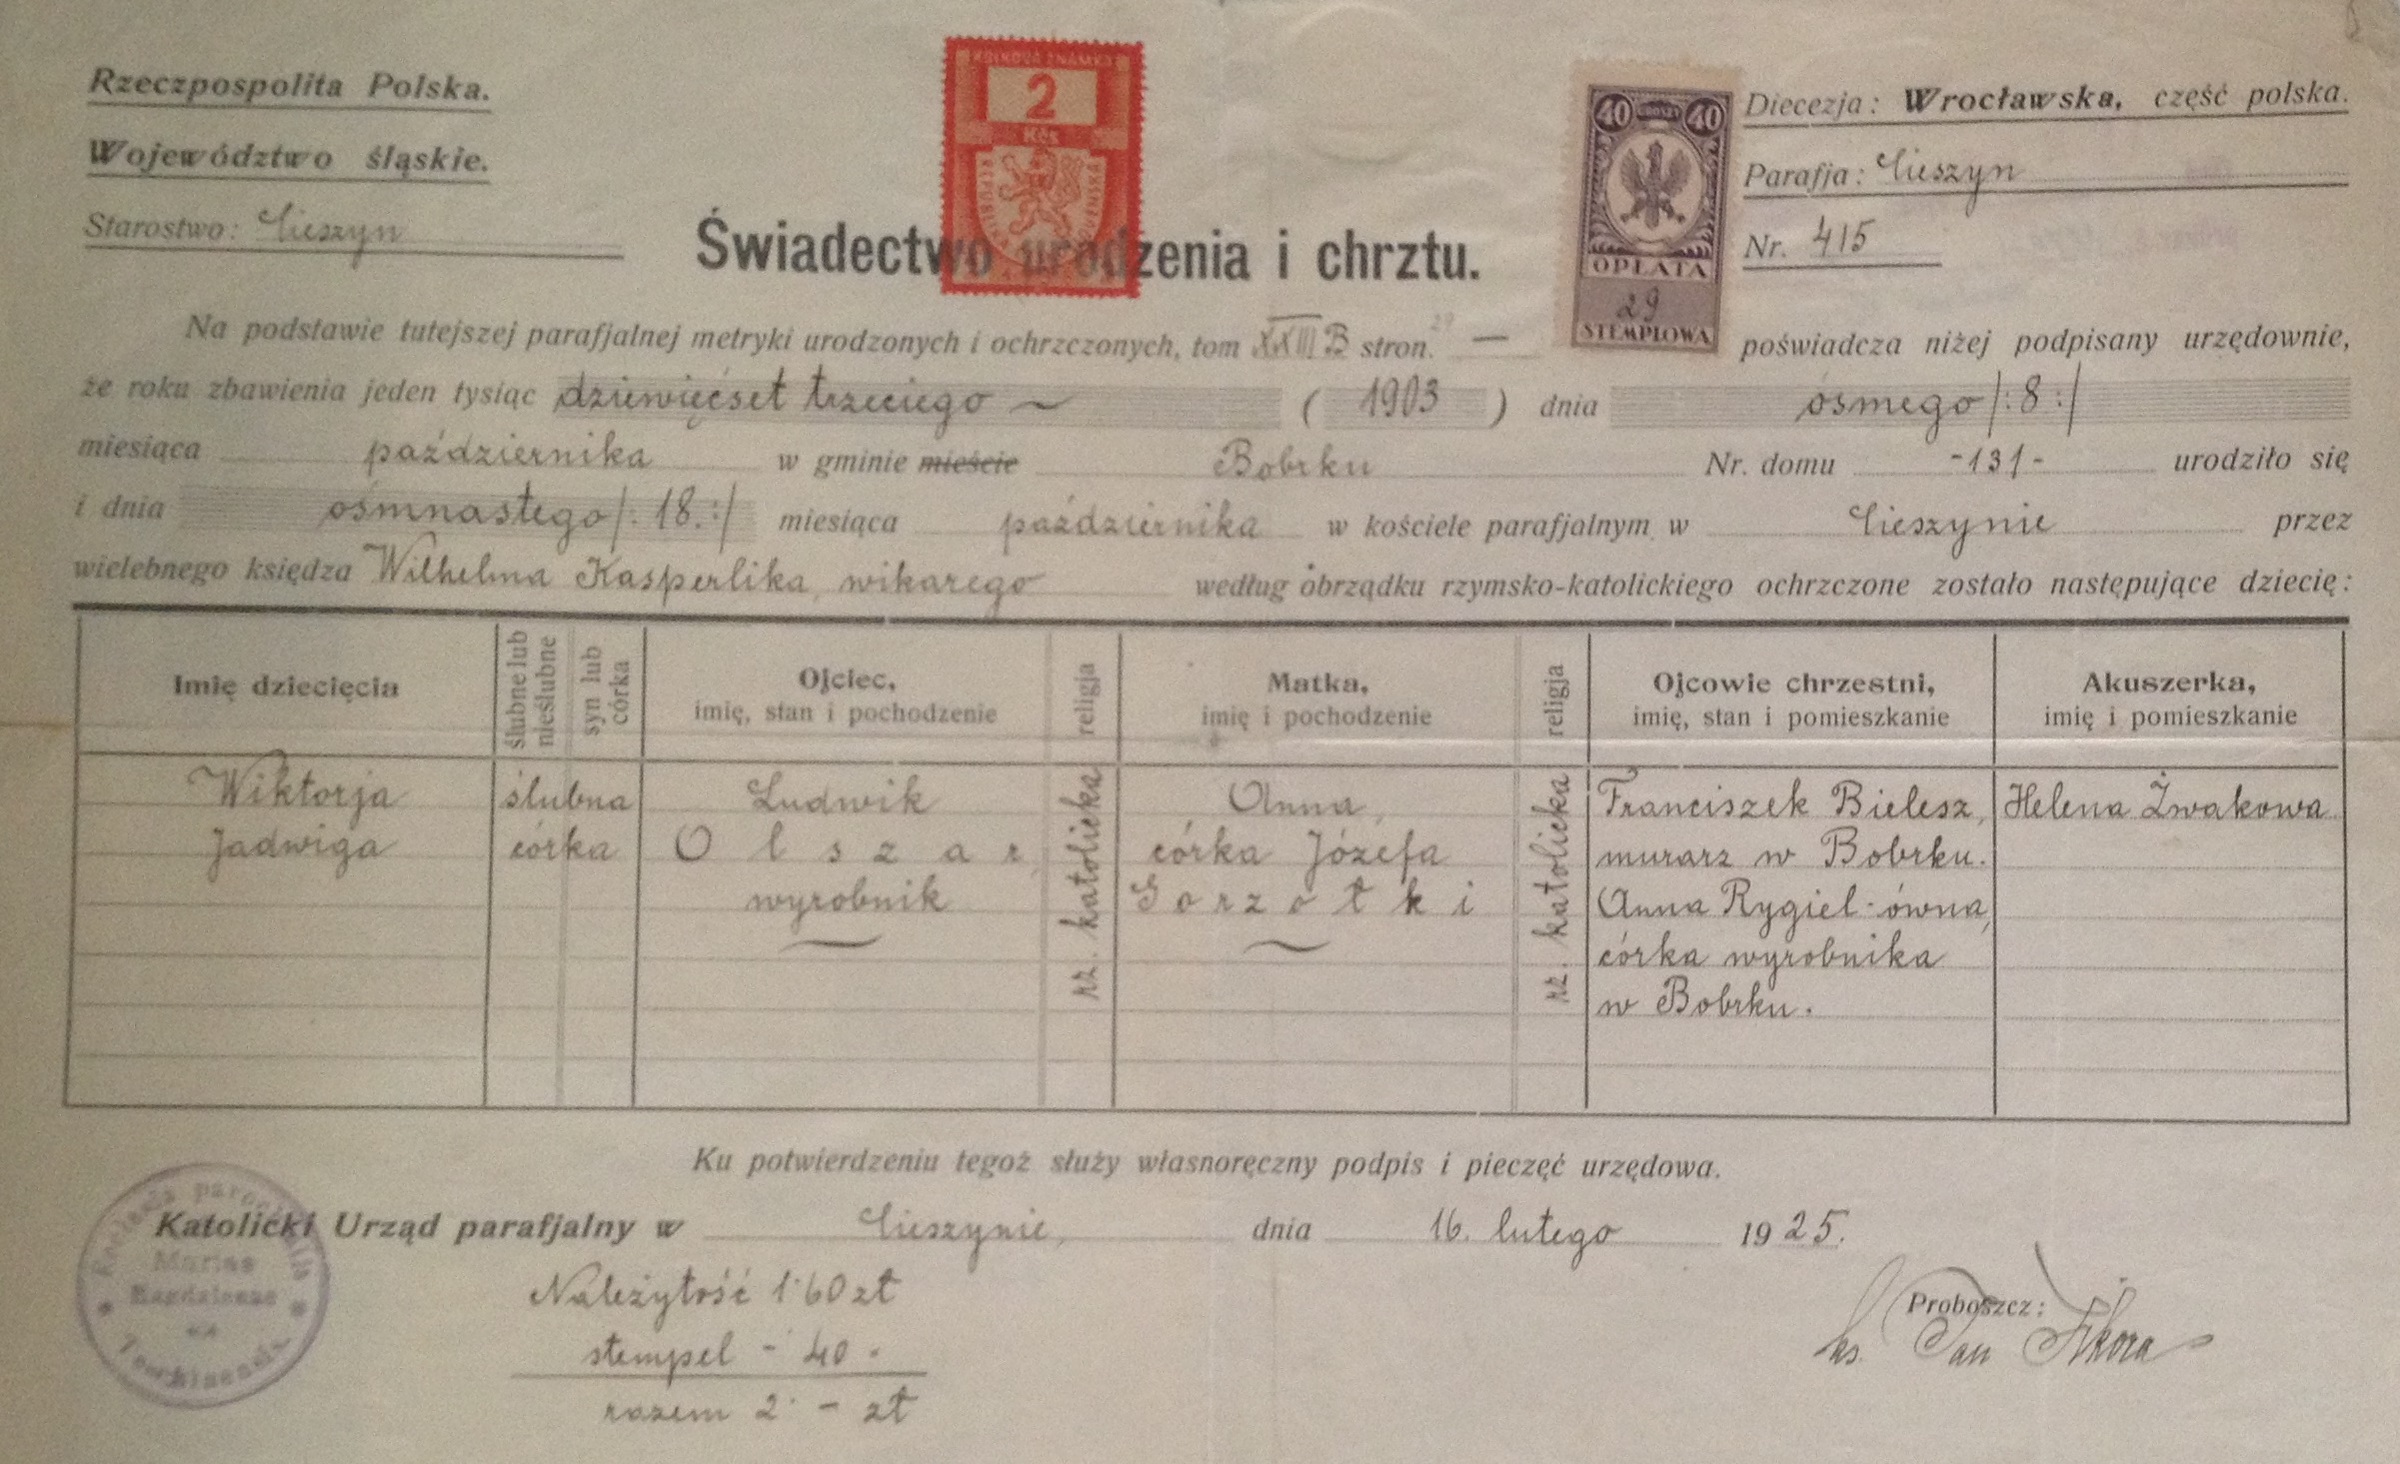 Rzeczpospolita Polska.
Województwo śląskie.
Starostwo: Cieszyn
KOLKOVÁ ZNÁMKA
2
Kčs
40 GROSZY 40
OPŁATA
29
STEMPLOWA
Diecezja: Wrocławska, część polska.
Parafja: Cieszyn
Nr. 415
Świadectwo urodzenia i chrztu.
Na podstawie tutejszej parafjalnej metryki urodzonych i ochrzczonych, tom XXIII B stron. 29 — poświadcza niżej podpisany urzędownie,
że roku zbawienia jeden tysiąc dziewięćset trzeciego ~ ( 1903 ) dnia ósmego /:8:/
miesiąca października w gminie mieście Bobrku Nr. domu -131- urodziło się
i dnia ośmnastego /:18.:/ miesiąca października w kościele parafjalnym w Cieszynie przez
wielebnego księdza Wilhelma Kasperlika, wikarego według obrządku rzymsko-katolickiego ochrzczone zostało następujące dziecię:
Imię dziecięcia
ślubne lub nieślubne
syn lub córka
Ojciec,
imię, stan i pochodzenie
religja
Matka,
imię i pochodzenie
religja
Ojcowie chrzestni,
imię, stan i pomieszkanie
Akuszerka,
imię i pomieszkanie
Wiktorja
Jadwiga
ślubna
córka
Ludwik
Olszar,
wyrobnik
rz. katolicka
Anna,
córka Józefa
Gorzołki
rz. katolicka
Franciszek Bielesz,
murarz w Bobrku.
Anna Rygiel-ówna,
córka wyrobnika
w Bobrku.
Helena Żwakowa
Ku potwierdzeniu tegoż służy własnoręczny podpis i pieczęć urzędowa.
Katolicki Urząd parafjalny w Cieszynie, dnia 16. lutego 1925.
Należytość 1·60 zł
stempel -·40·
razem 2·- zł
Proboszcz:
ks. Jan Sikora
Mariae
Magdalenae